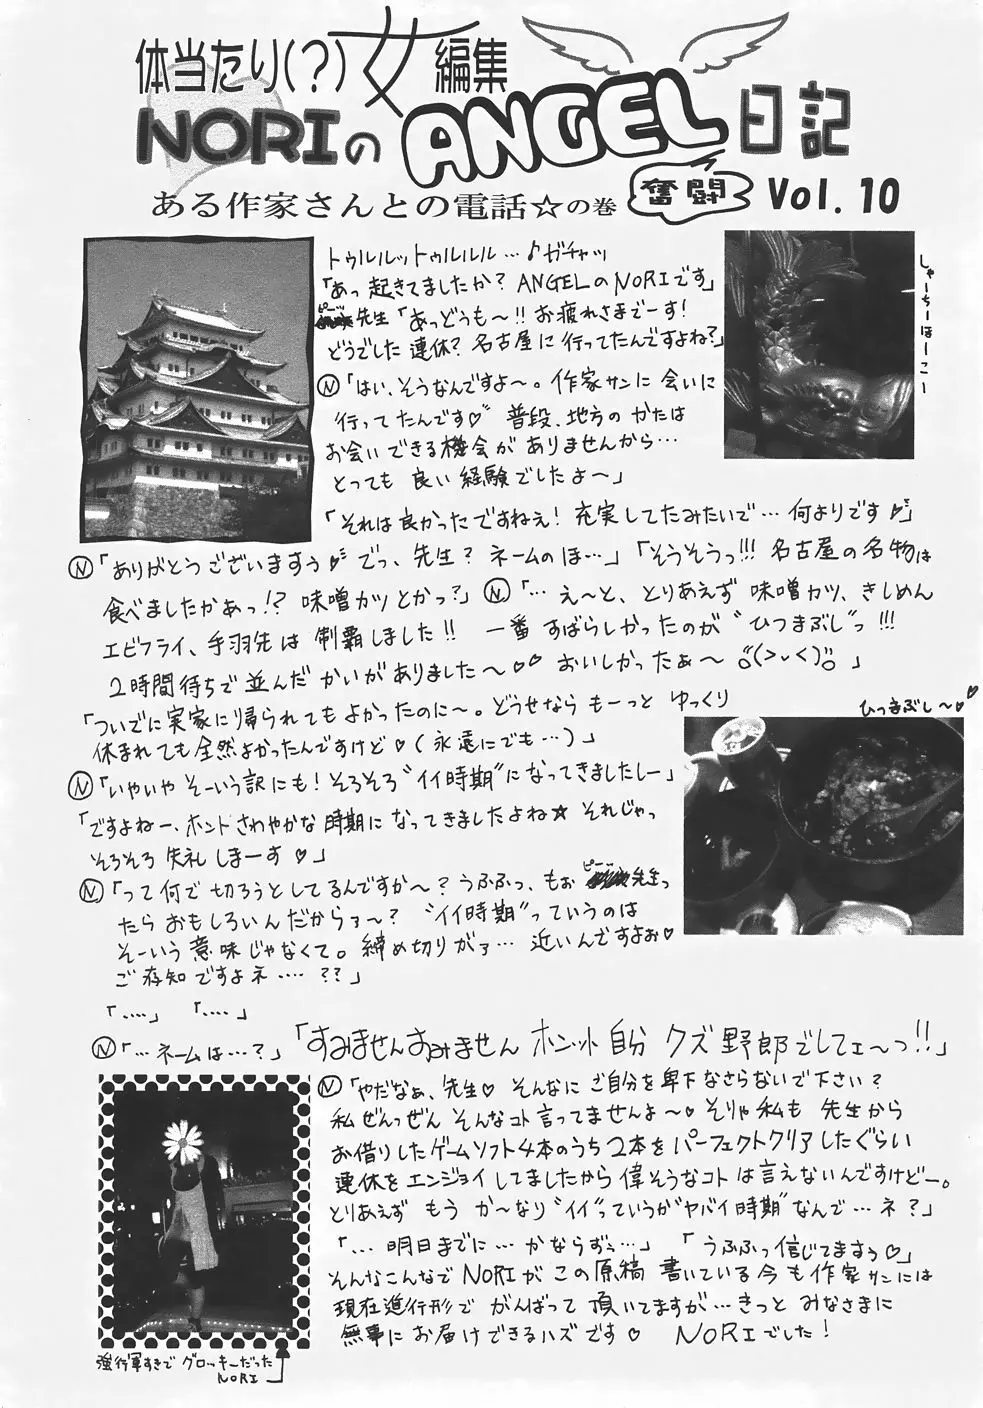 体当たり(?)女編集
NORIのANGEL日記
奮闘
Vol. 10
ある作家さんとの電話☆の巻
トゥルルットゥルルル…♪ガチャッ
「あっ起きてましたか? ANGELのNORIです」
ピーッ
先生「あっどうも〜!!お疲れさまでーす!
どうでした連休?名古屋に行ってたんですよね?」
しゃーちーほーこー
Ⓝ「はい、そうなんですよ〜。作家サンに会いに
行ってたんです♡普段、地方のかたは
お会いできる機会がありませんから…
とっても良い経験でしたよ〜」
「それは良かったですねえ!充実してたみたいで…何よりです♡」
Ⓝ「ありがとうございますぅ♡でっ、先生?ネームのほ…」「そうそうっ!!!名古屋の名物は
食べましたかあっ!?味噌カツとかっ?」Ⓝ「…え〜と、とりあえず味噌カツ、きしめん
エビフライ、手羽先は制覇しました!!一番すばらしかったのが“ひつまぶし”っ!!!
2時間待ちで並んだかいがありました〜♡♡おいしかったぁ〜 」
「ついでに実家に帰られてもよかったのに〜。どうせならもーっとゆっくり
ひつまぶし〜♡
休まれても全然よかったんですけど♡(永遠にでも…)」
Ⓝ「いやいやそーいう訳にも!そろそろ“イイ時期”になってきましたしー」
「ですよねー、ホントさわやかな時期になってきましたよね☆それじゃっ
そろそろ失礼しまーす♡」
ピーッ
Ⓝ「って何で切ろうとしてるんですか〜?うふふっ、もぉ 先生っ
たらおもしろいんだからァ〜?“イイ時期”っていうのは
そーいう意味じゃなくて。締め切りがァ…近いんですよぉ♡
ご存知ですよネ‥‥??」
「‥‥」「‥‥」
Ⓝ「…ネームは…?」「すみませんすみませんホンット自分クズ野郎でしてェ〜っ!!」
Ⓝ「やだなぁ、先生♡そんなにご自分を卑下なさらないで下さい?
私ぜんっぜんそんなコト言ってませんよ〜♡そりゃ私も先生から
お借りしたゲームソフト4本のうち2本をパーフェクトクリアしたぐらい
連休をエンジョイしてましたから偉そうなコトは言えないんですけどー。
とりあえずもうか〜なり“イイ”っていうか“ヤバイ時期”なんで…ネ?」
「…明日までに…かならずぃ…」「うふふっ信じてますぅ♡」
そんなこんなでNORIがこの原稿書いている今も作家サンには
現在進行形でがんばって頂いてますが…きっとみなさまに
無事にお届けできるハズです♡ NORIでした!
強行軍すぎでグロッキーだった
NORI